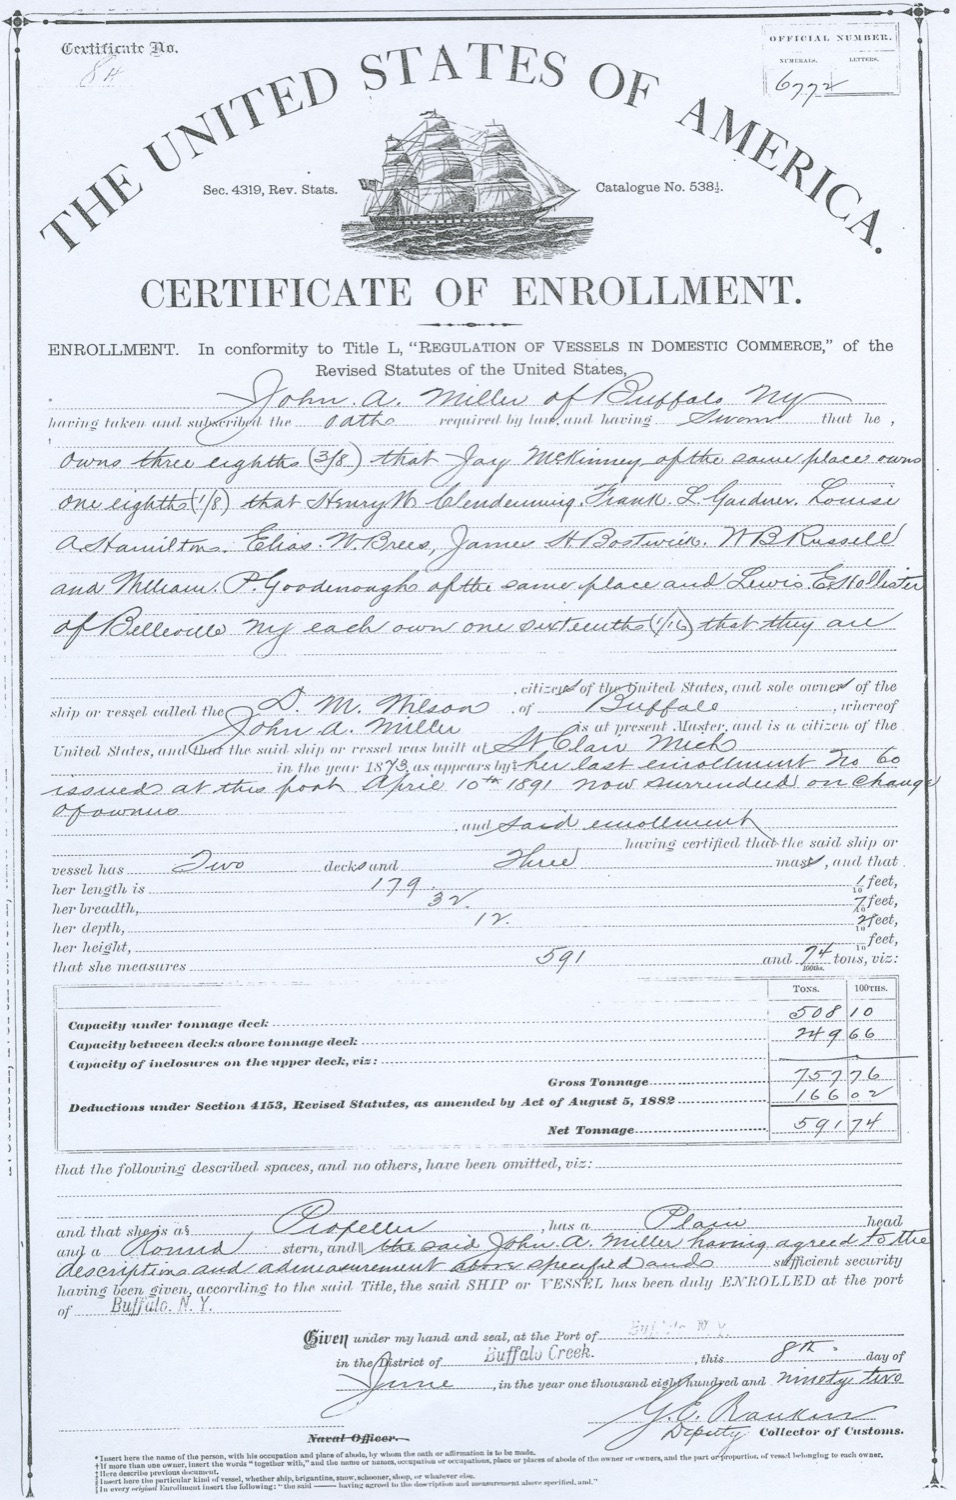 Certificate No.
84
OFFICIAL NUMBER.
NUMERALS. LETTERS.
6772
THE UNITED STATES OF AMERICA.
Sec. 4319, Rev. Stats.
Catalogue No. 538½.
CERTIFICATE OF ENROLLMENT.
ENROLLMENT. In conformity to Title L, "REGULATION OF VESSELS IN DOMESTIC COMMERCE," of the
Revised Statutes of the United States,
* John A. Miller of Buffalo NY
having taken and subscribed the oath required by law, and having Sworn that he ,
owns three eighths (3/8) that Jay McKinney of the same place owns
one eighth (1/8) that Henry W Clendenning. Frank L Gardner. Louise
A Hamilton. Elias. W. Brees, James H Bostwick. W B Russell
and William. P. Goodenough of the same place and Lewis. E. Hollister
of Belleville NY each own one sixteenths (1/16) that they are
, citizens of the United States, and sole owner of the
ship or vessel called the D. M. Wilson , of Buffalo , whereof
John A. Miller is at present Master, and is a citizen of the
United States, and that the said ship or vessel was built at St Clair Mich
in the year 1873, as appears by‡ her last enrollment No 60
issued at this port April 10th 1891 now surrendered on change
of owners
, and said enrollment
having certified that the said ship or
vessel has Two decks and Three mast , and that
her length is 179 1/10 feet,
her breadth, 32 7/10 feet,
her depth, 12 2/10 feet,
her height, /10 feet,
that she measures 591 and 74/100ths. tons, viz:
TONS. 100THS.
Capacity under tonnage deck 508 10
Capacity between decks above tonnage deck 249 66
Capacity of inclosures on the upper deck, viz:
Gross Tonnage 757 76
Deductions under Section 4153, Revised Statutes, as amended by Act of August 5, 1882 166 02
Net Tonnage 591 74
that the following described spaces, and no others, have been omitted, viz:
and that she is a§ Propeller , has a Plain head
and a Round stern, and|| the said John A. Miller having agreed to the
description and admeasurement above specified and sufficient security
having been given, according to the said Title, the said SHIP or VESSEL has been duly ENROLLED at the port
of Buffalo. N. Y.
Given under my hand and seal, at the Port of Buffalo N. Y.
in the District of Buffalo Creek. , this 8th day of
June , in the year one thousand eight hundred and ninety two
G. E. Rankin
Naval Officer. Deputy Collector of Customs.
* Insert here the name of the person, with his occupation and place of abode, by whom the oath or affirmation is to be made.
† If more than one owner, insert the words "together with," and the name or names, occupation or occupations, place or places of abode of the owner or owners, and the part or proportion of vessel belonging to each owner.
‡ Here describe previous document.
§ Insert here the particular kind of vessel, whether ship, brigantine, snow, schooner, sloop, or whatever else.
|| In every original Enrollment insert the following: "the said —— having agreed to the description and measurement above specified, and."